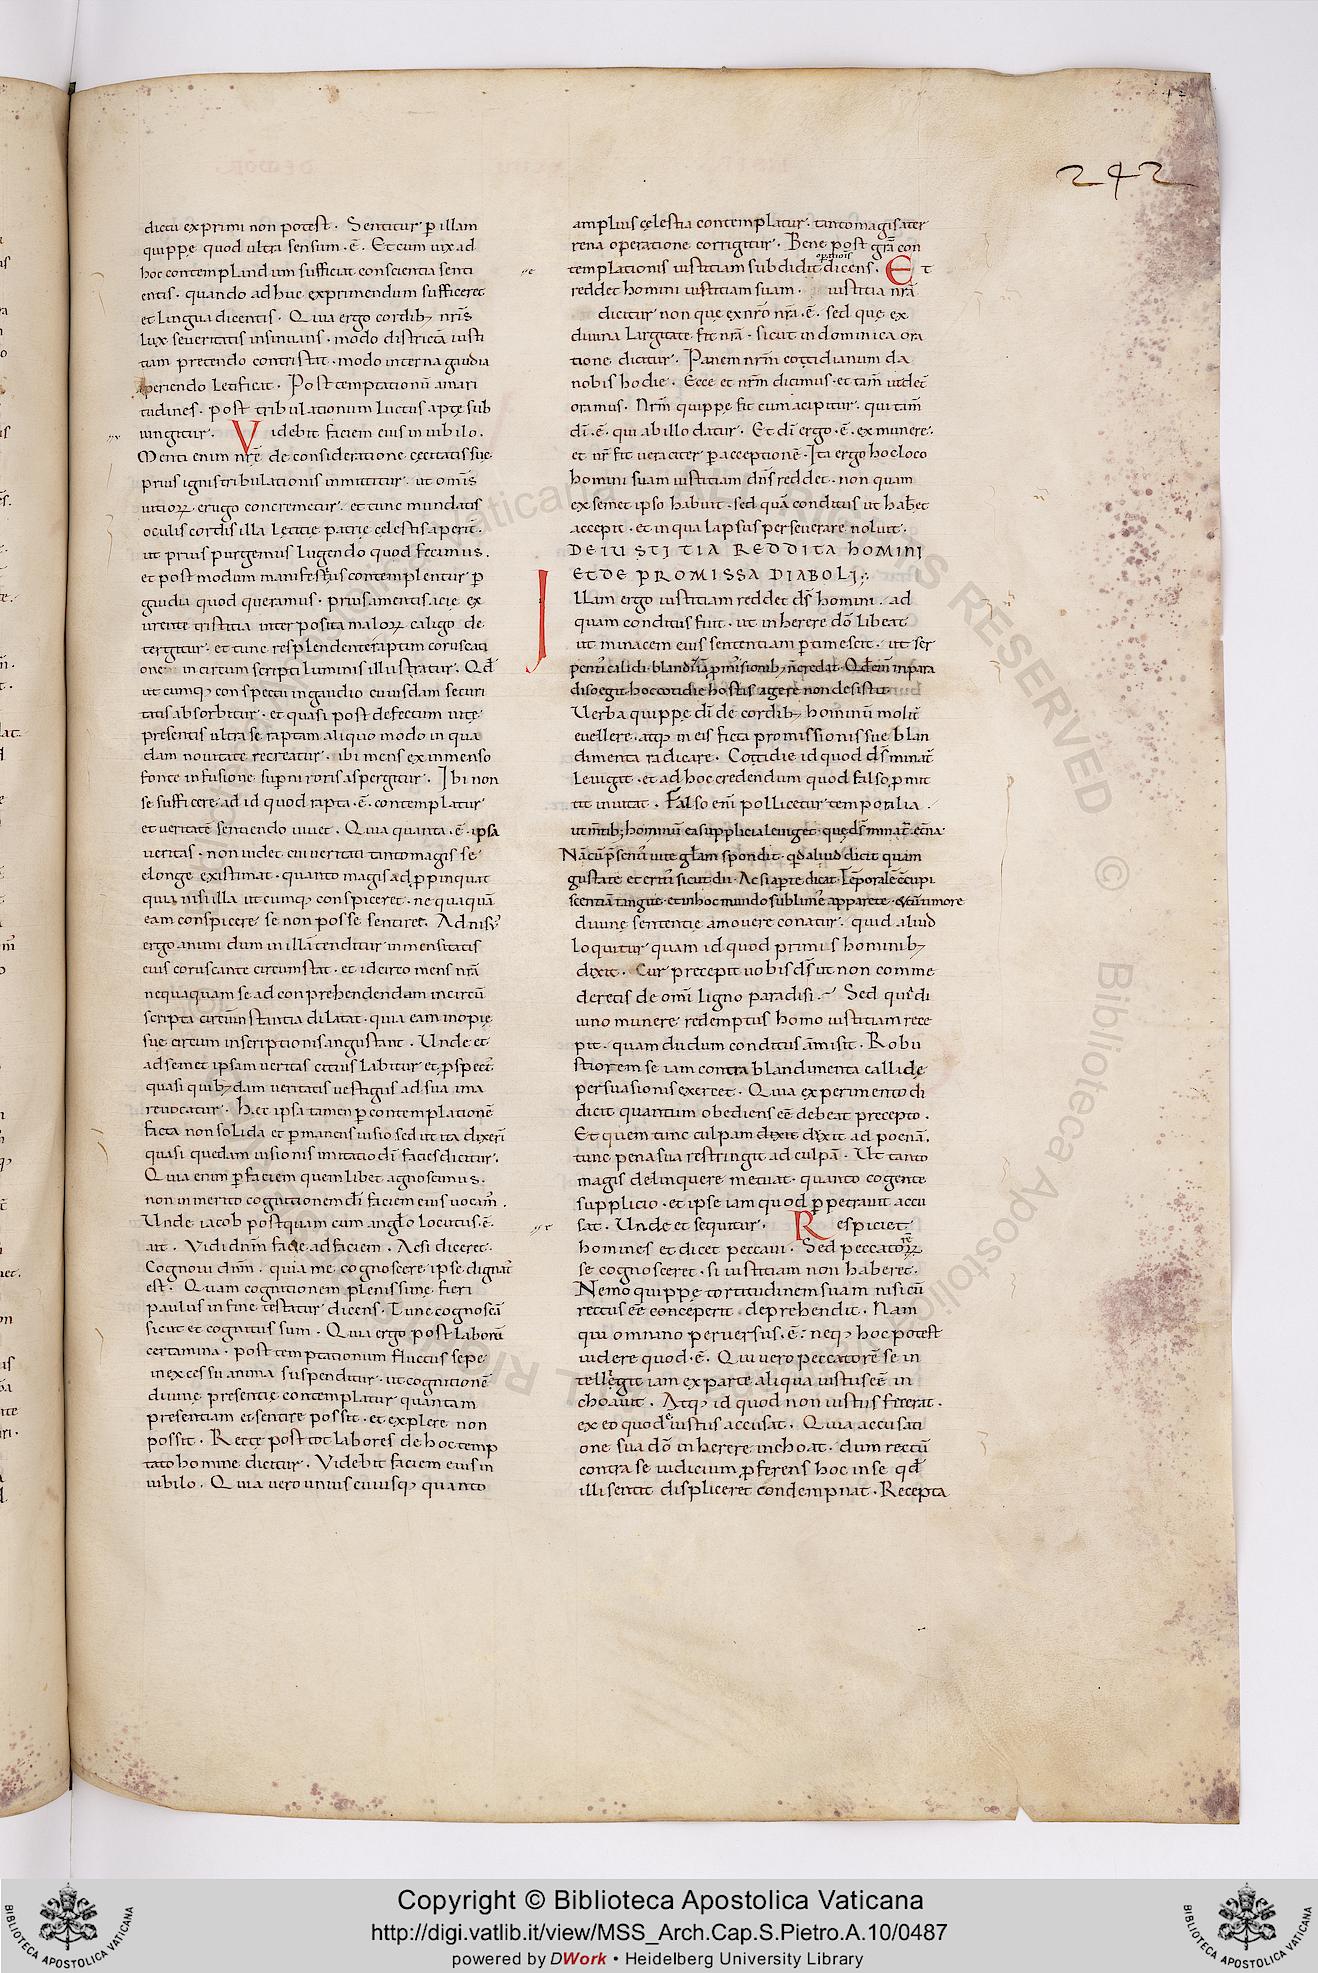 242
dictu exprimi non potest. Sentitur p̄ illam
quippę quod ultra sensum .ē. Et cum uix ad
hoc contemplandum sufficiat conscientia senti
entis. quando adhuc exprimendum sufficeret
et lingua dicentis. Quia ergo cordib; nr̄is
lux seueritatis insinuans. modo districtā iusti
tiam pretendo contristat. modo interna gaudia
aperiendo letificat. Post temptationū amari
tudines. post tribulationum luctus aptę sub
iungitur. Videbit faciem eius in iubilo.
Menti enim nr̄e de consideratione cęcitatis suę
prius ignis tribulationis inmittitur. ut omīs
uitiorꝝ erugo concremetur. et tunc mundatis
oculis cordis illa lętitię patrię cęlestis aperit̄.
ut prius purgemus lugendo quod fecimus.
et post modum manifestius contemplentur p̄
gaudia quod queramus. prius a mentis acie ex
urente tristitia interposita malorꝝ caligo de
tergitur. et tunc resplendente raptim coruscati
one incircumscripti luminis illustratur. Qd̄
ut cumq; conspectu in gaudio cuiusdam securi
tatis absorbitur. et quasi post defectum uitę
presentis ultra se raptam aliquo modo in qua
dam nouitate recreatur. ibi mens ex inmenso
fonte infusione sup̄ni roris aspergitur. Ibi non
se sufficere ad id quod rapta .ē. contemplatur
et ueritatē sentiendo uiuet. Quia quanta .ē. ipsa
ueritas. non uidet cui ueritati tanto magis se
elonge existimat. quanto magis ad p̄pinquat
quia nisi illa ut cumque conspiceret. ne quaquā
eam conspicere se non posse sentiret. Adnisus
ergo animi dum in illā tenditur inmensitatis
eius coruscante circumstat. et idcirco mens nr̄a
nequaquam se ad conprehendendam incircū
scripta circūnstantia dilatat. quia eam inopię
sue circum inscriptionis angustant. Unde et
ad semet ipsam ueritas citius labitur et p̄spect̄
quasi quib;dam ueritatis uestigiis ad sua ima
reuocatur. Hęc ipsa tamen p̄ contemplationē
facta non solida et p̄manens uisio sed ut ita dixerī
quasi quędam uisionis imitatio dī facies dicitur.
Quia enim p̄ faciem quemlibet agnoscimus.
non inmerito cognitionem dī faciem eius uocam̄.
Unde iacob postquam cum anglo locutus .ē.
ait. Vidi dn̄m facie ad faciem. Acsi diceret.
Cognoui dn̄m. quia me cognoscere ipse dignat̄
est. Quam cognitionem plenissimę fieri
paulus in fine testatur dicens. Tunc cognoscā
sicut et cognitus sum. Quia ergo post laborū
certamina. post temptationum fluctus sepe
in excessu anima suspenditur. ut cognitionē
diuinę presentię contemplatur quantam
presentiam et sentire possit. et explere non
possit. Rectę post tot labores de hoc temp
tato homine dicitur. Videbit faciem eius in
iubilo. Quia uero unus cuiusq; quanto
amplius cęlestia contemplatur. tanto magis a ter
rena operatione corrigitur. Bene post gr̄ā con
templationis iustitiam subdidit dicens. Et
reddet homini iustitiam suam. iustitia nr̄ā
dicitur non que ex nr̄o nr̄a .ē. sed quę ex
diuina largitate fit nr̄a. sicut in dominica ora
tione dicitur. Panem nr̄m cottidianum da
nobis hodie. Ecce et nr̄m dicimus. et tam̄ ut det̄
oramus. Nr̄m quippe fit cum acipitur. qui tam̄
dī .ē. qui ab illo datur. Et dī ergo .ē. ex munere.
et nr̄ fit ueraciter p̄ acceptionē. Ita ergo hoc loco
homini suam iustitiam dn̄s reddet. non quam
ex semet ipso habuit. sed quā conditus ut habet
accepit. et in qua lapsus perseuerare noluit.
DE IUSTITIA REDDITA HOMINI
ET DE PROMISSA DIABOLI.
Illam ergo iustitiam reddet ds̄ homini. ad
quam conditus fuit. ut inherere dō libeat
ut minacem eius sententiam p̄timescit. ut ser
disoegit. hoc cotidie hostis agere non desistit
Uerba quippę dī de cordib; hominū molit̄
euellere. atq; in eis ficta promissionis suę blan
dimenta radicare. Cottidie id quod ds̄ minat̄
leuigat. et ad hoc credendum quod falso p̄mit
tit inuitat. Falso enī pollicetur temporalia.
ut m̄tib; hominū ea supplicia leuiget. quę ds̄ minat̄ et̄na
Nā cū p̄senti uitę gl̄am spondit. qd aliud dicit quam
gustate et eritis sicut dii. Ac si ap̄te dicat. Tēporalē c̄cupi
scentiā tangite. et in hoc mundo sublimes apparete. et cū timore
diuinę sententię amouere conatur. quid aliud
loquitur quam id quod primis hominib;
dixit. Cur precepit uobis ds̄ ut non comme
deretis de omī ligno paradisi. Sed qui di
uino munere redemptus homo iustitiam rece
pit. quam dudum conditus āmisit. Robu
stiorem se iam contra blandimenta callidę
persuasionis exercet. Quia experimento di
dicit quantum obediens eē debeat precepto.
Et quem tunc culpam dixit dixit ad poenā.
tunc pena sua restringit ad culpā. Ut tanto
magis delinquere metuat. quanto cogente
supplicio. et ipse iam quod p̄petrauit accu
sat. Unde et sequitur. Respiciet
homines et dicet peccaui. Sed peccatorꝝ
se cognosceret. si iustitiam non haberet.
Nemo quippę tortitudinem suam nisi cū
rectus eē conceperit deprehendit. Nam
qui omnino peruersus .ē. neq; hoc potest
uidere quod .ē. Qui uero peccatorē se in
tellegit iam ex parte aliqua iustus eē in
choauit. Atq; id quod non iustus fecerat.
ex eo quod ē iustus accusat. Quia accusati
one sua dō inherere inchoat. dum rectū
contra se iudicium p̄ferens hoc in se qd̄
illi sentit displiceret condempnat. Recepta
Copyright © Biblioteca Apostolica Vaticana
http://digi.vatlib.it/view/MSS_Arch.Cap.S.Pietro.A.10/0487
powered by DWork • Heidelberg University Library
BIBLIOTECA APOSTOLICA VATICANA
BIBLIOTECA APOSTOLICA VATICANA